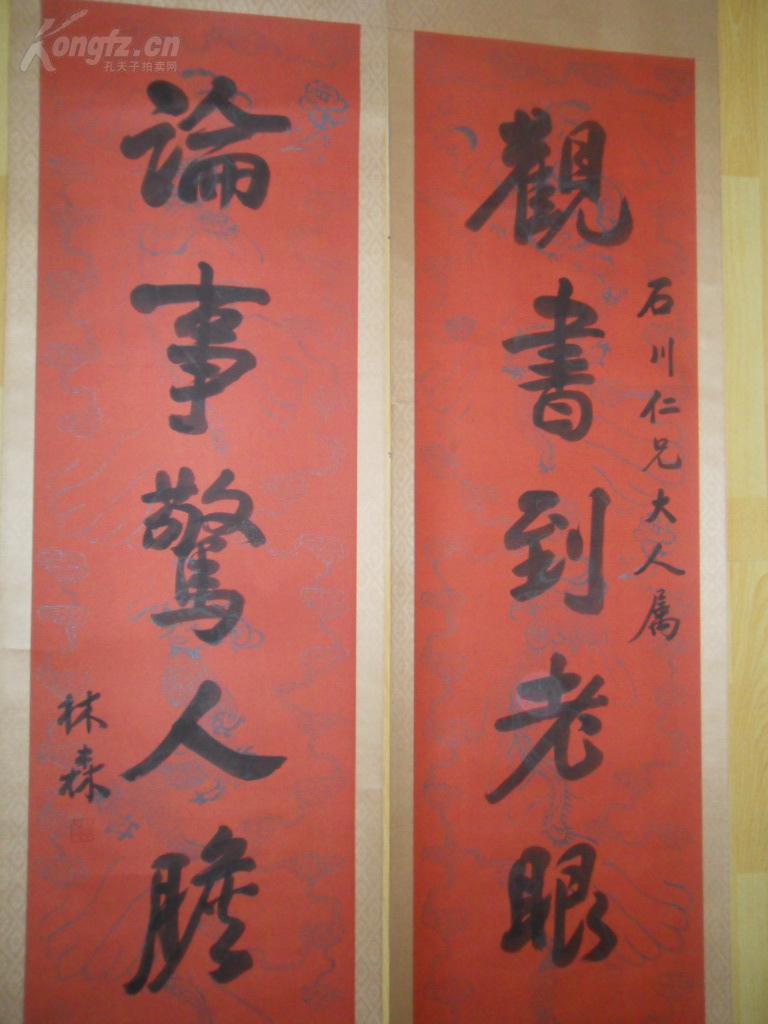 Kongfz.cn
孔夫子拍卖网
石川仁兄大人属
觀書到老眼
論事驚人膽
林森